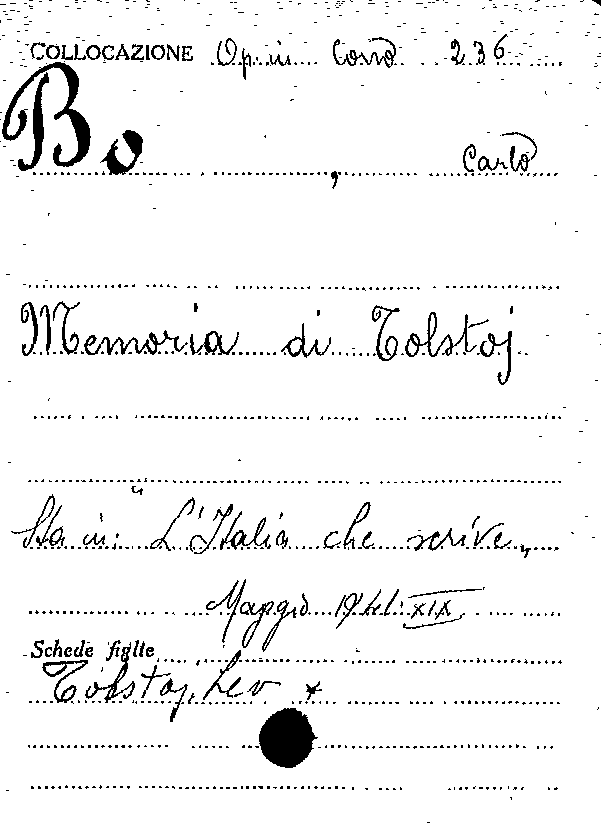 COLLOCAZIONE Op. in Corso 236
Bo, Carlo
Memoria di Tolstoj
Sta in: "L'Italia che scrive„
Maggio 1941. XIX
Schede figlie
Tolstoj, Lev *